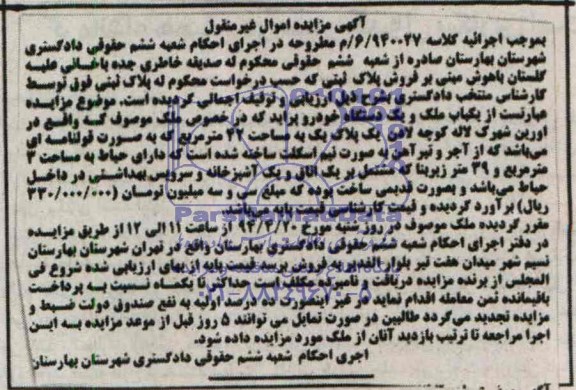 آگهی مزایده اموال غیرمنقول
بموجب اجرائیه کلاسه ۶/۹۴۰۰۲۷/م مطروحه در اجرای احکام شعبه ششم حقوقی دادگستری
شهرستان بهارستان صادره از شعبه ششم حقوقی محکوم له صدیقه خاطری جده باخانی علیه
گلستان باهوش مبنی بر فروش پلاک ثبتی که حسب درخواست محکوم له پلاک ثبتی فوق توسط
کارشناس منتخب دادگستری بشرح ذیل ارزیابی و توقیف اجمالی گردیده است. موضوع مزایده
عبارتست از یکباب ملک و یک دستگاه خودرو پراید که در خصوص ملک موصوف که واقع در
اورین شهرک لاله کوچه لاله یک پلاک یک به مساحت ۴۲ مترمربع که به صورت قولنامه ای
میباشد که از آجر و تیرآهن و بصورت نیم اسکلت ساخته شده است که دارای حیاط به مساحت ۳
مترمربع و ۳۹ متر زیربنا که مشتمل بر یک اتاق و یک آشپزخانه و سرویس بهداشتی در داخل
حیاط می‌باشد و بصورت قدیمی ساخت بوده که مبلغ سی و سه میلیون تومان (۳۳۰/۰۰۰/۰۰۰
ریال) برآورد گردیده و قیمت کارشناسی قیمت پایه می‌باشد.
مقرر گردیده ملک موصوف در روز شنبه مورخ ۹۴/۴/۲۰ از ساعت ۱۱ الی ۱۲ از طریق مزایده
در دفتر اجرای احکام شعبه ششم حقوقی دادگستری بهارستان واقع در تهران شهرستان بهارستان
نسیم شهر میدان هفت تیر بلوار الغدیر به فروش برسد قیمت پایه از بهای ارزیابی شده شروع فی
المجلس از برنده مزایده دریافت و نامبرده مکلف است حداکثر تا یکماه نسبت به پرداخت
باقیمانده ثمن معامله اقدام نماید در غیر اینصورت سپرده اولیه به نفع صندوق دولت ضبط و
مزایده تجدید می‌گردد طالبین در صورت تمایل می توانند ۵ روز قبل از موعد مزایده به این
اجرا مراجعه تا ترتیب بازدید آنان از ملک مورد مزایده داده شود.
اجری احکام شعبه ششم حقوقی دادگستری شهرستان بهارستان
ParsNamadData
۰۲۱-۸۸۳۴۹۶۷۰-۵